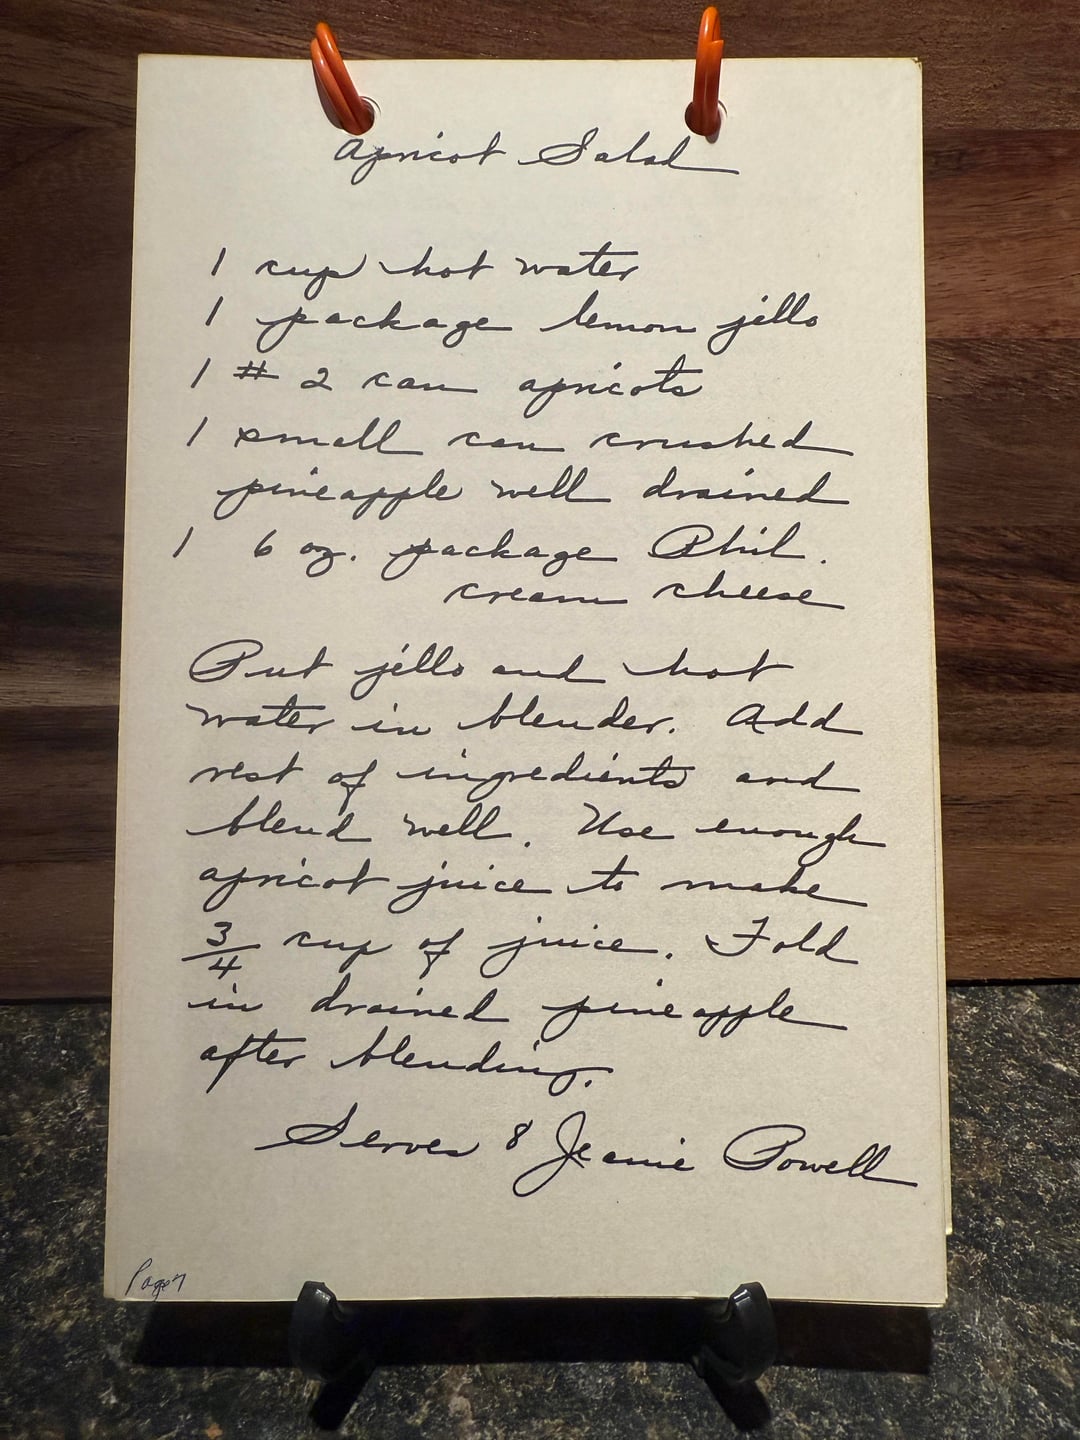 Apricot Salad
1 cup hot water
1 package lemon jello
1 # 2 can apricots
1 small can crushed
pineapple well drained
1 6 oz. package Phil.
cream cheese
Put jello and hot
water in blender. Add
rest of ingredients and
blend well. Use enough
apricot juice to make
3/4 cup of juice. Fold
in drained pineapple
after blending.
Serves 8 Jeanie Powell
Page 7